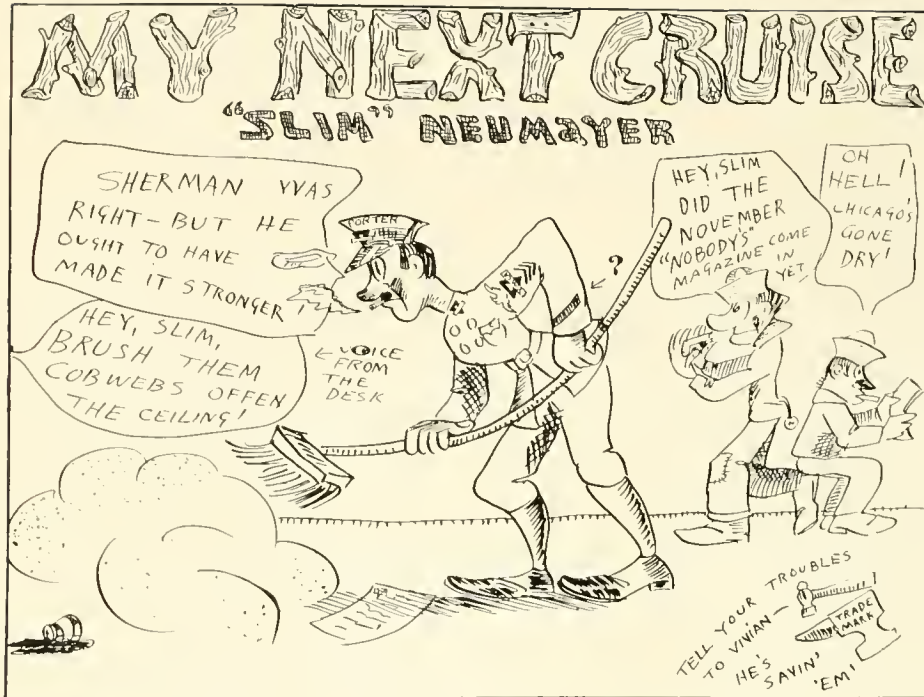 MY NEXT CRUISE
"SLIM" NEUMAYER
SHERMAN WAS
RIGHT - BUT HE
OUGHT TO HAVE
MADE IT STRONGER
HEY, SLIM,
BRUSH THEM
COBWEBS OFFEN
THE CEILING!
VOICE
FROM
THE
DESK
PORTER
?
HEY, SLIM
DID THE
NOVEMBER
"NOBODY'S"
MAGAZINE COME
IN YET
OH
HELL!
CHICAGO'S
GONE
DRY!
TELL YOUR TROUBLES
TO VIVIAN -
HE'S
SAVIN'
'EM'
TRADE
MARK